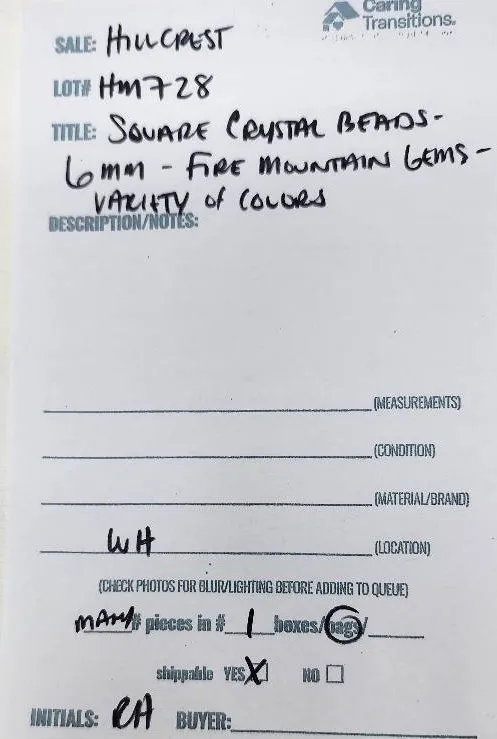 Caring
Transitions.
SALE: HILLCREST
LOT# HM728
TITLE: SQUARE CRYSTAL BEADS-
6mm - FIRE MOUNTAIN GEMS-
VARIETY of COLORS
DESCRIPTION/NOTES:
(MEASUREMENTS)
(CONDITION)
(MATERIAL/BRAND)
WH (LOCATION)
(CHECK PHOTOS FOR BLUR/LIGHTING BEFORE ADDING TO QUEUE)
MANY # pieces in # 1 boxes/bags/
shippable YES X NO
INITIALS: RH BUYER: